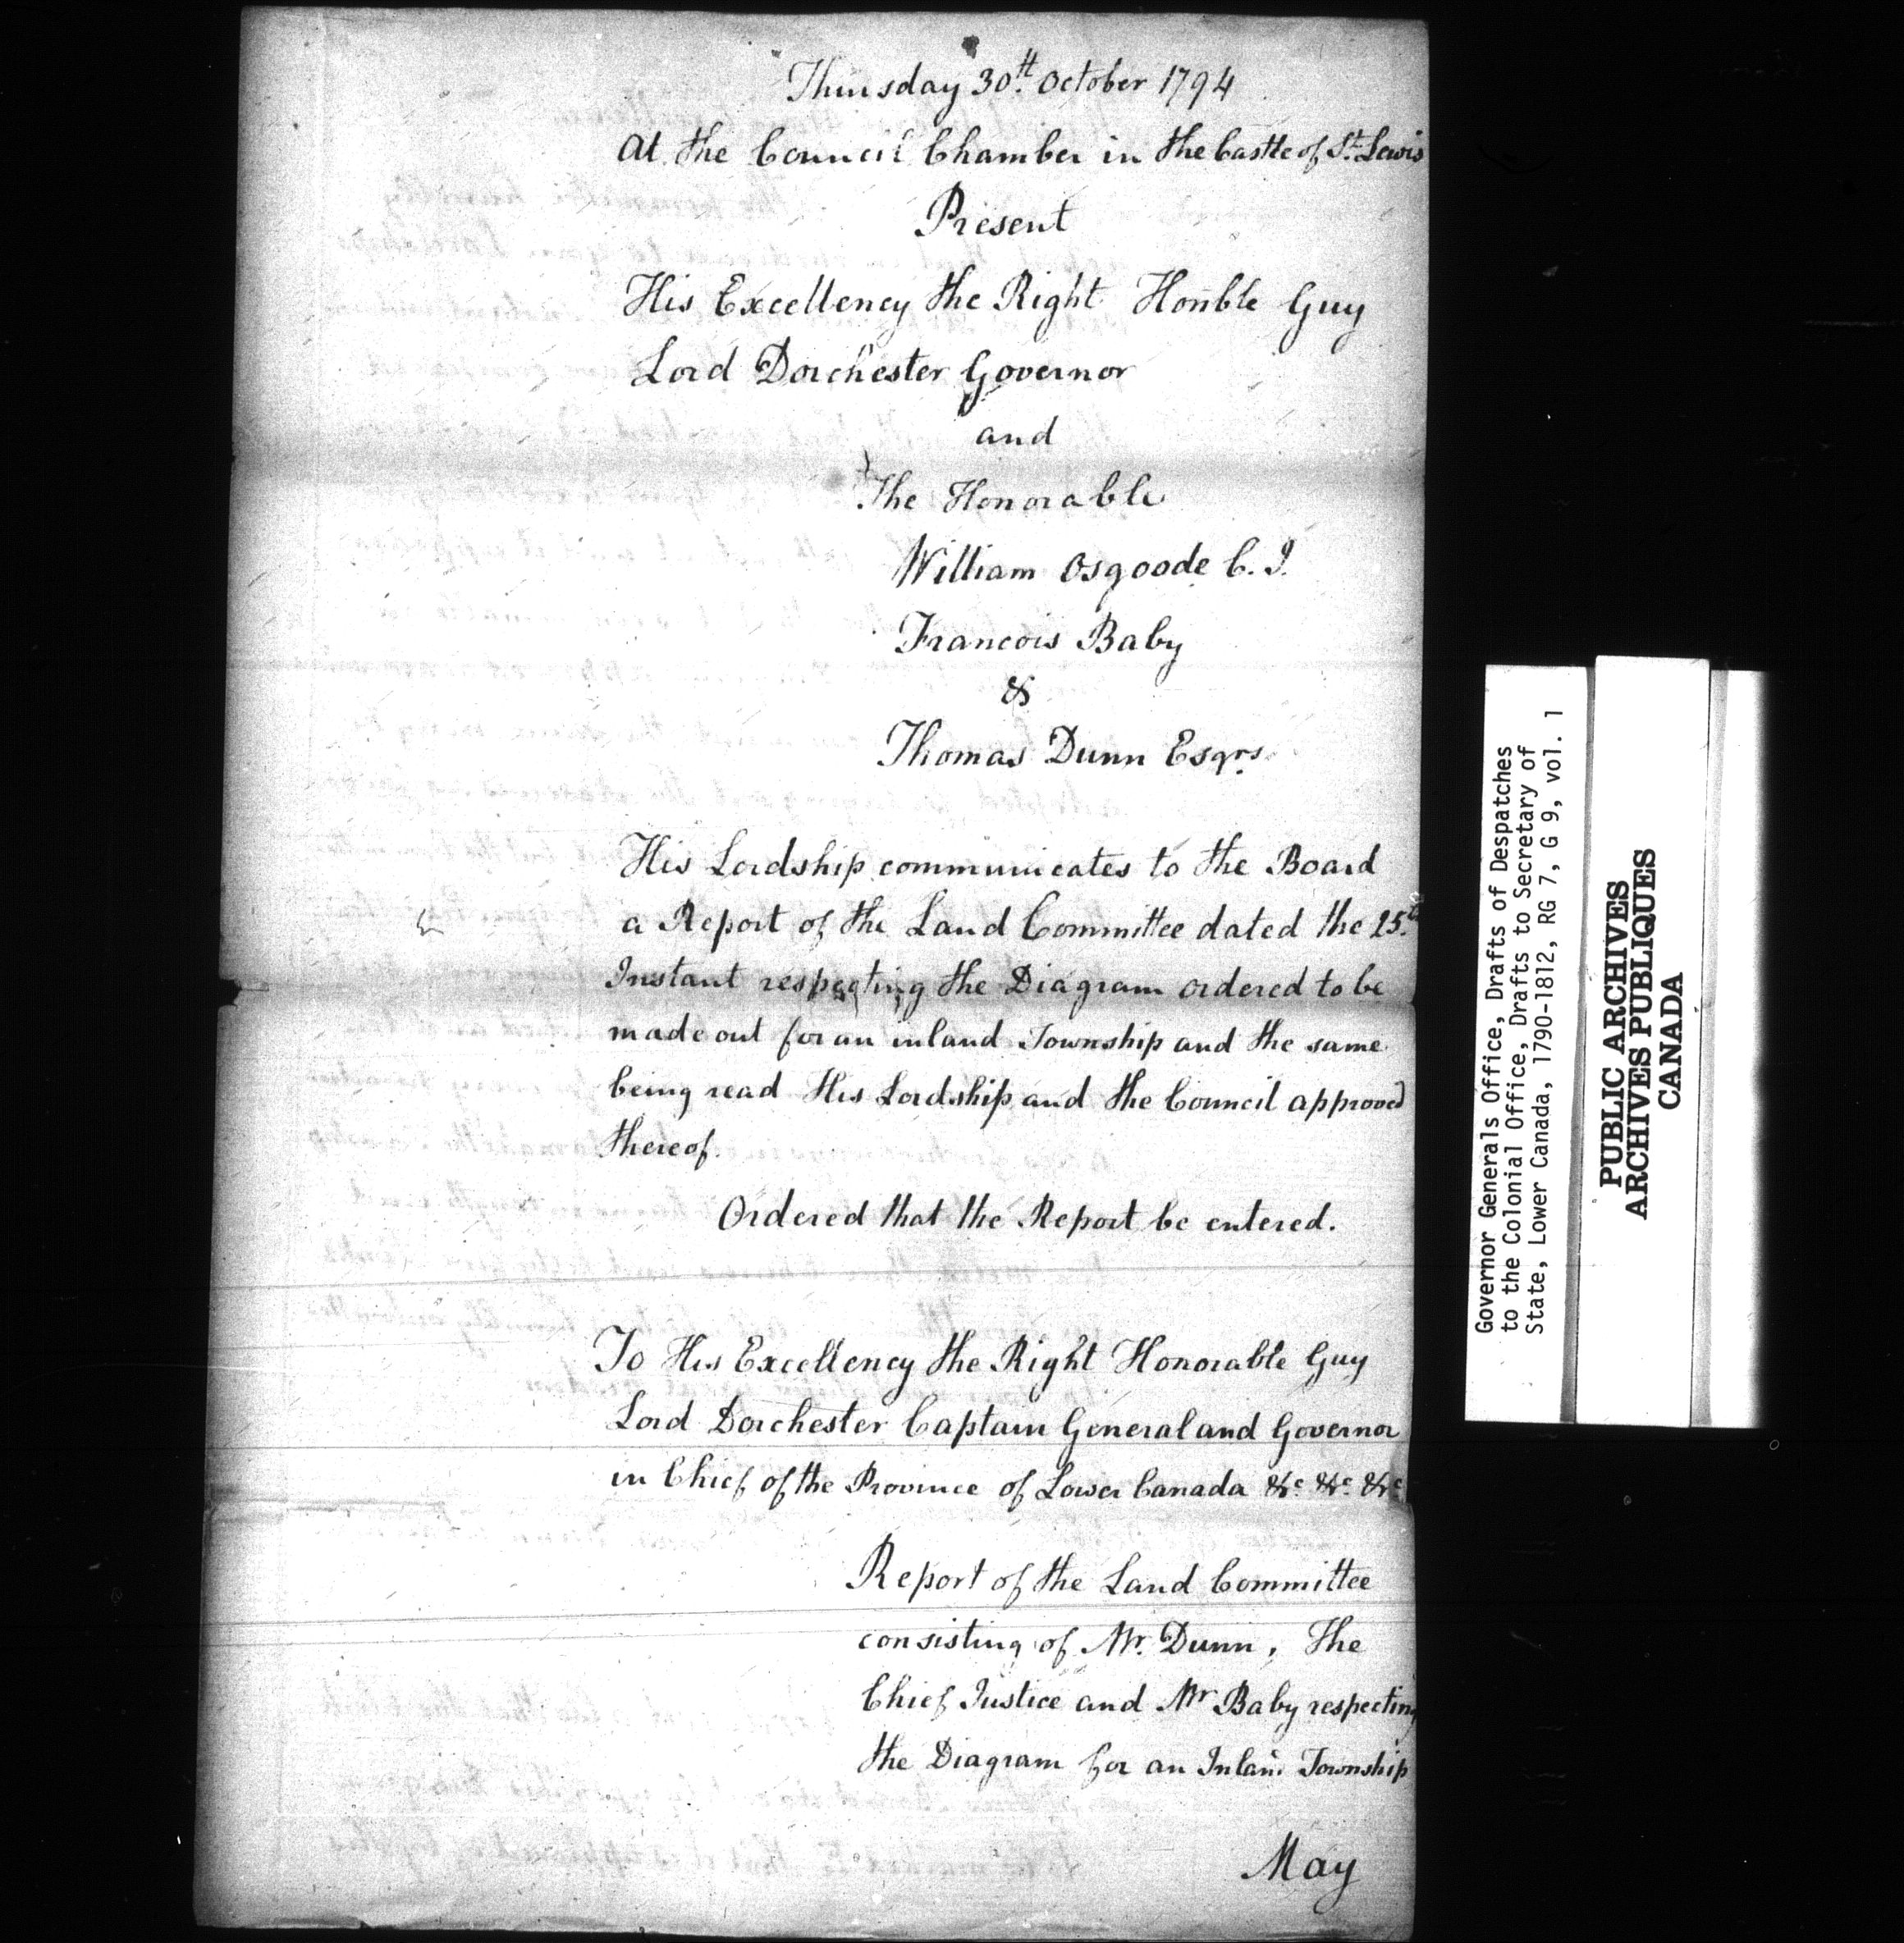 Thursday 30th. October 1794
At the Council Chamber in the Castle of St. Lewis
Present
His Excellency the Right Honble Guy
Lord Dorchester Governor
and
The Honorable
William Osgoode C. J.
Francois Baby
&
Thomas Dunn Esqrs.
His Lordship communicates to the Board
a Report of the Land Committee dated the 25.th
Instant respecting the Diagram ordered to be
made out for an inland Township and the same
being read His Lordship and the Council approved
thereof.
Ordered that the Report be entered.
To His Excellency the Right Honorable Guy
Lord Dorchester Captain General and Governor
in Chief of the Province of Lower Canada &c. &c. &c
Report of the Land Committee
consisting of Mr. Dunn, The
Chief Justice and Mr Baby respecting
the Diagram for an Inland Township
May
Governor Generals Office, Drafts of Despatches
to the Colonial Office, Drafts to Secretary of
State, Lower Canada, 1790-1812, RG 7, G 9, vol. 1
PUBLIC ARCHIVES
ARCHIVES PUBLIQUES
CANADA